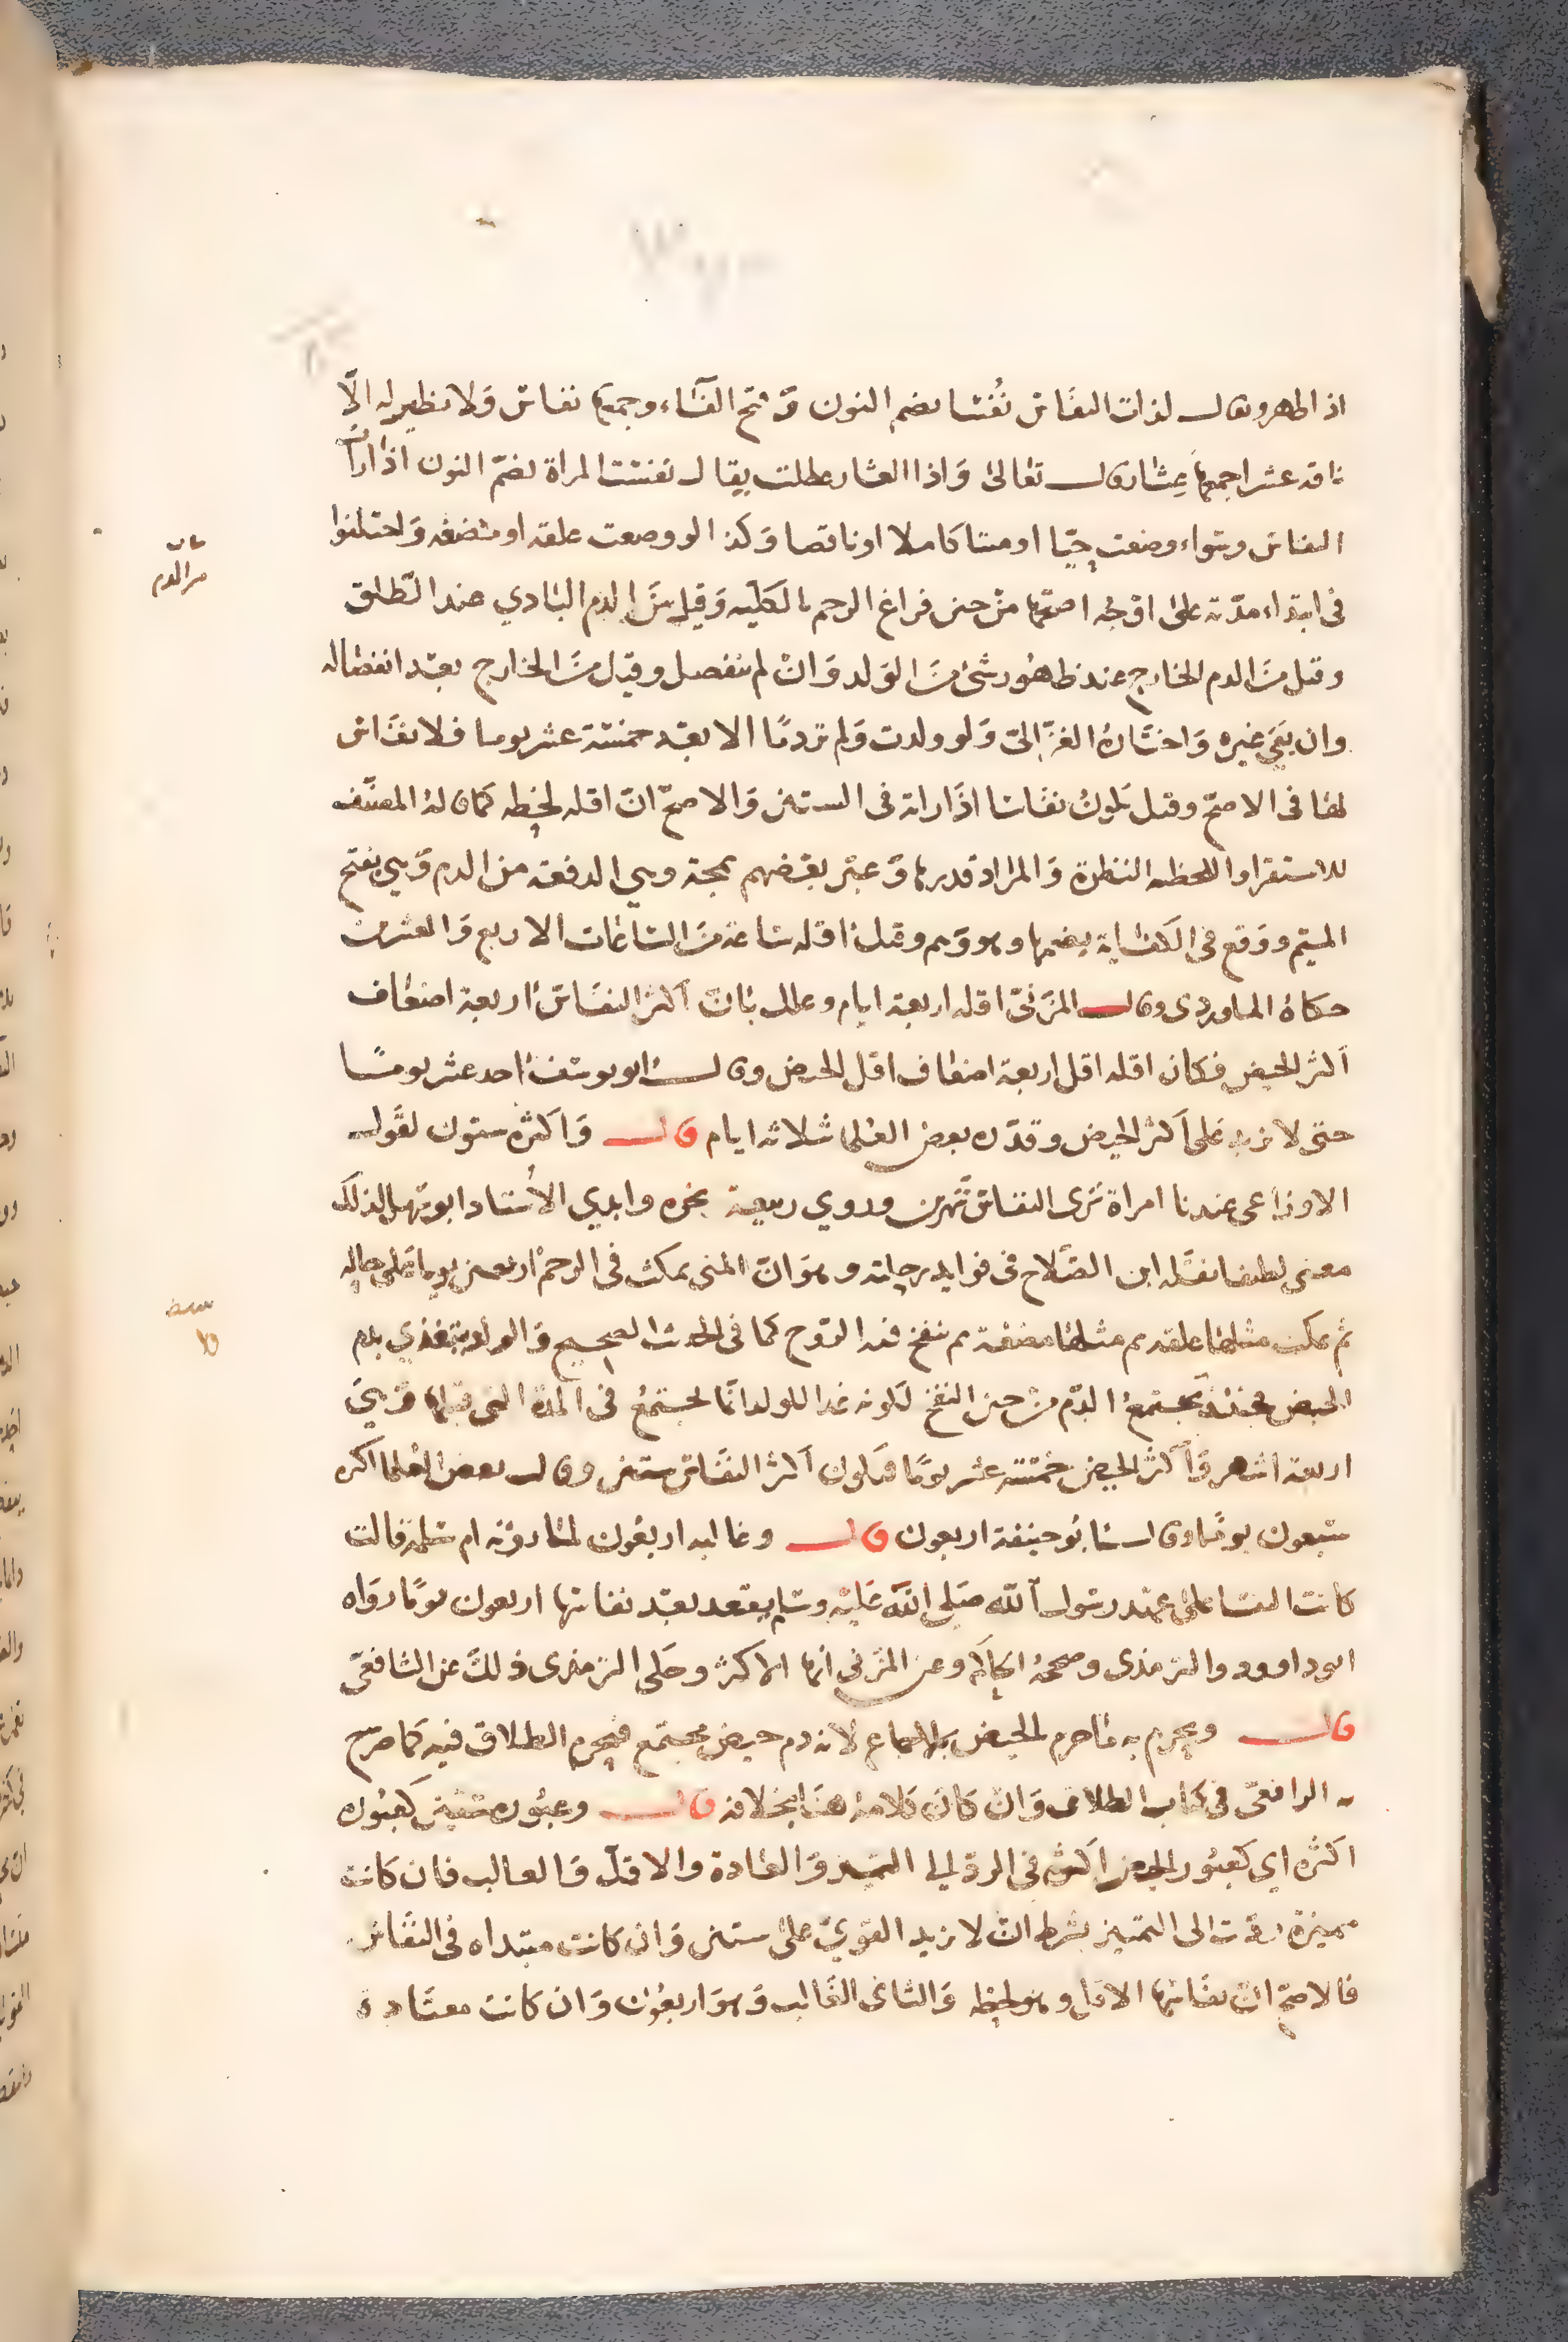 اذ الطهر ويقال لذات النفاس نُفَسا بضم النون وفتح الفاء وجمعها نفاس ولا نظير له الّا
ناقة عشرا جمعها عِشار قال تعالى واذا العشار عطلت يقال نفست المراة بضم النون اذا رات
النفاس وسواء وضعت حيّا او ميتا كاملا او ناقصا وكذا لو وضعت علقه او مضغه واختلفوا
في ابتداء مدّته على اوجُه اصحّها من حين فراغ الرحم بالكليه وقيل من الدم البادي عند الطلق
وقيل من الدم الخارج عند ظهور شي من الولد وان لم ينفصل وقيل من الخارج بعد انفصاله
وان بقي غيره واختاره الغزالي ولو ولدت ولم تر دمًا الا بعد خمسة عشر يوما فلا نفاس
لها في الاصح وقيل يكون نفاسا اذا راته في الستين والاصح ان اقله لحظه كما قاله المصنف
للاستقرا واللحظه النظرة والمراد قدرها وعبر بعضهم بمجة وهي الدفعة من الدم وهي بفتح
الميم ووقع في الكفاية بضمها وهو وهم وقيل اقله ساعة من الساعات الاربع والعشرين
حكاه الماوردي وقال المزني اقله اربعة ايام وعلل بان اكثر النفاس اربعة اضعاف
اكثر الحيض فكان اقله اقل اربعة اضعاف اقل الحيض وقال ابو يوسف احد عشر يومًا
حتى لا يزيد على اكثر الحيض وقدّره بعض العلما بثلاثه ايام قال واكثره ستون لقول
الاوزاعي عندنا امراة ترى النفاس شهرين وروي ربيعة نحوه وابدي الاستاد ابو سهل لذلك
معنى لطيفا نقله ابن الصلاح في فوايد رحلته وهو ان المني يمكث في الرحم اربعين يوما على حاله
ثم يمكث مثلها علقه ثم مثلها مضغة ثم ينفخ فيه الروح كما في الحديث الصحيح والولد يتغذي بدم
الحيض فحينئذ يجتمع الدّم من حين النفخ لكونه غذا للولد انما يجتمع في المدة التي قبلها وهي
اربعة اشهر واكثر الحيض خمسة عشر يومًا فيكون اكثر النفاس ستين وقال بعض العلما اكثره
سبعون يومًا وقال ابو حنيفة اربعون قال وغالبه اربعون لما روته ام سلمة قالت
كانت النفسا على عهد رسول الله صلى الله عليه وسلم تقعد بعد نفاسها اربعون يومًا رواه
ابو داوود والترمذي وصححه الحاكم وعن المزني انها الاكثر وحكى الترمذي ذلك عن الشافعي
قال ويحرم به ما حرم الحيض بالاجماع لانه دم حيض مجتمع فيحرم الطلاق فيه كما صرح
به الرافعي في كتاب الطلاق وان كان كلامه هنا بخلافه قال وعبوره ستين كعبوره
اكثره اي كعبور الحيض اكثره في الرد الي التمييز والعادة والاقل والغالب فان كانت
مميزة ردت الى التمييز بشرط ان لا يزيد القوي على ستين وان كانت مبتداه في النفاس
فالاصح ان نفاسها الاقل وهو لحظه والثاني الغالب وهو اربعون وان كانت معتادة
من الدم